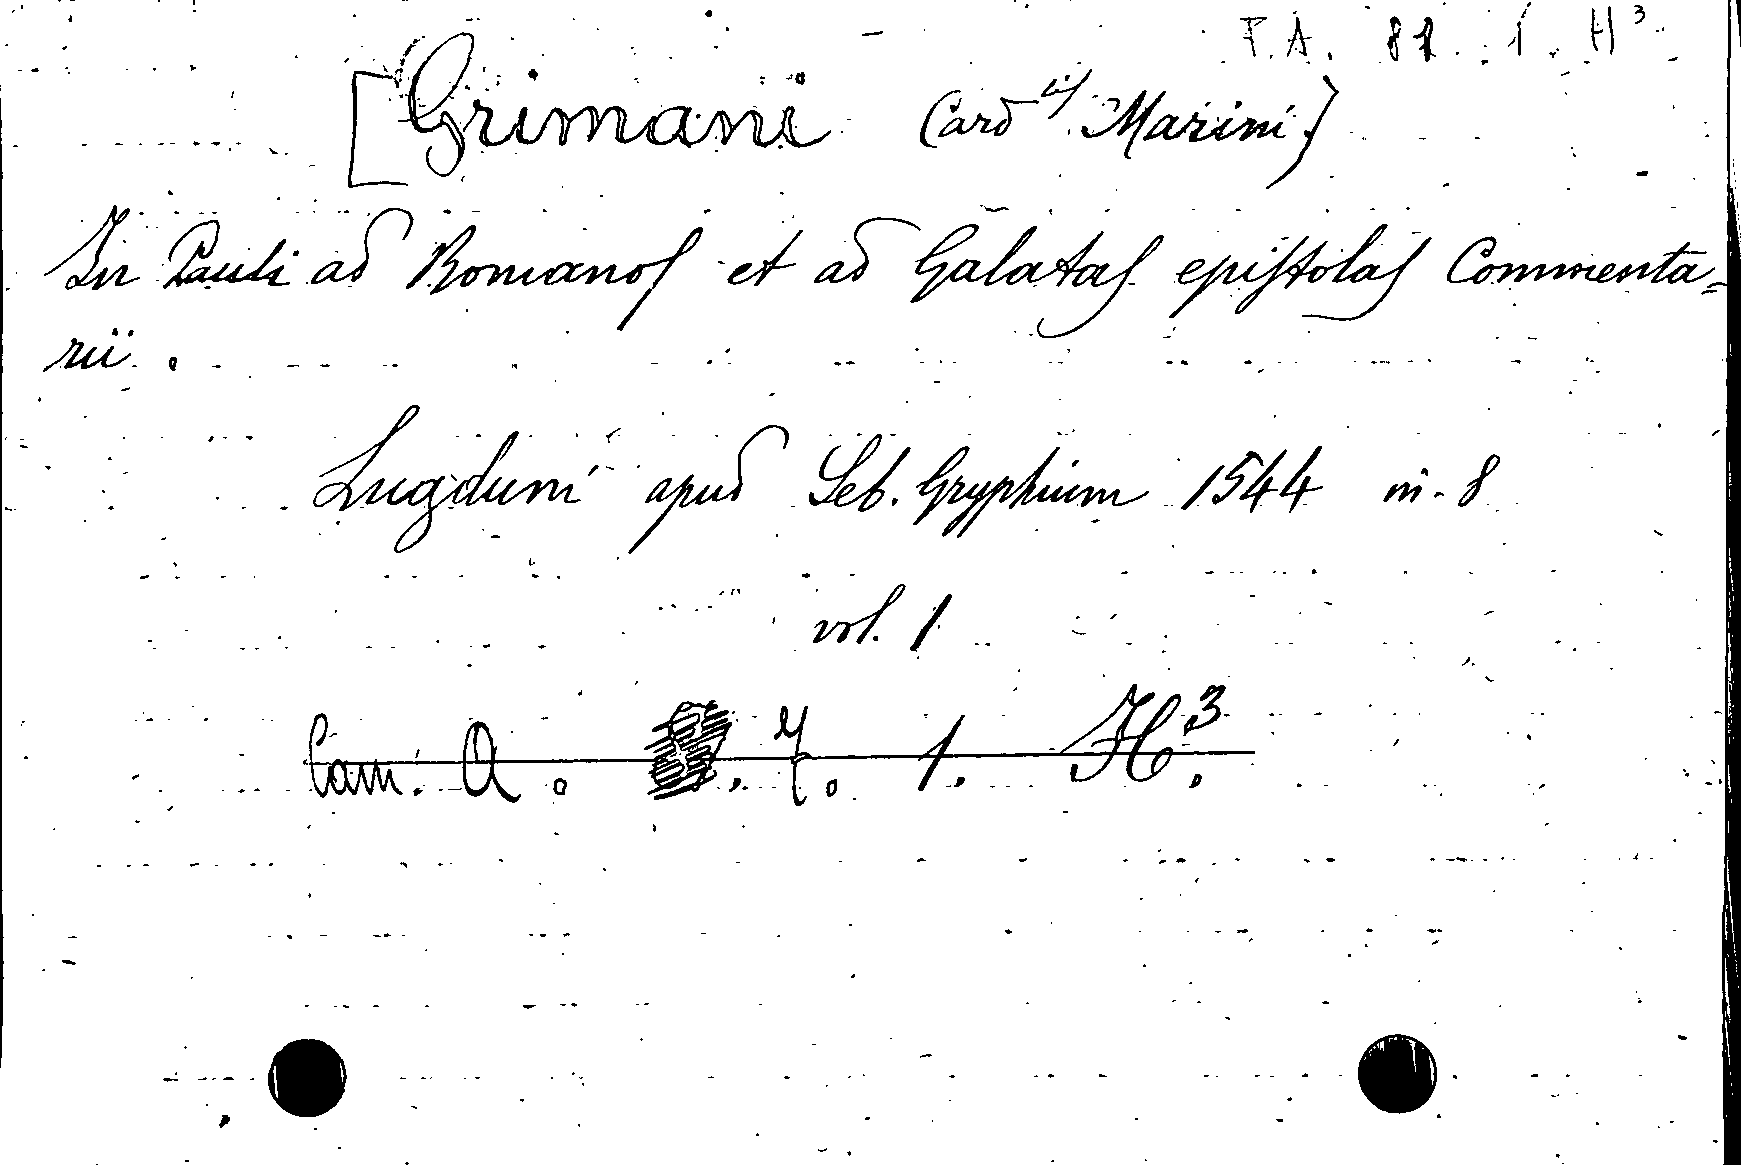 F.A. 82 1. H³
[Grimani Card^lis Marini]
In Pauli ad Romanos et ad Galatas epistolas Commenta=
rii.
Lugduni apud Seb. Gryphium 1544 in-8
vol. 1
Cam. A. 7. 1. H³.